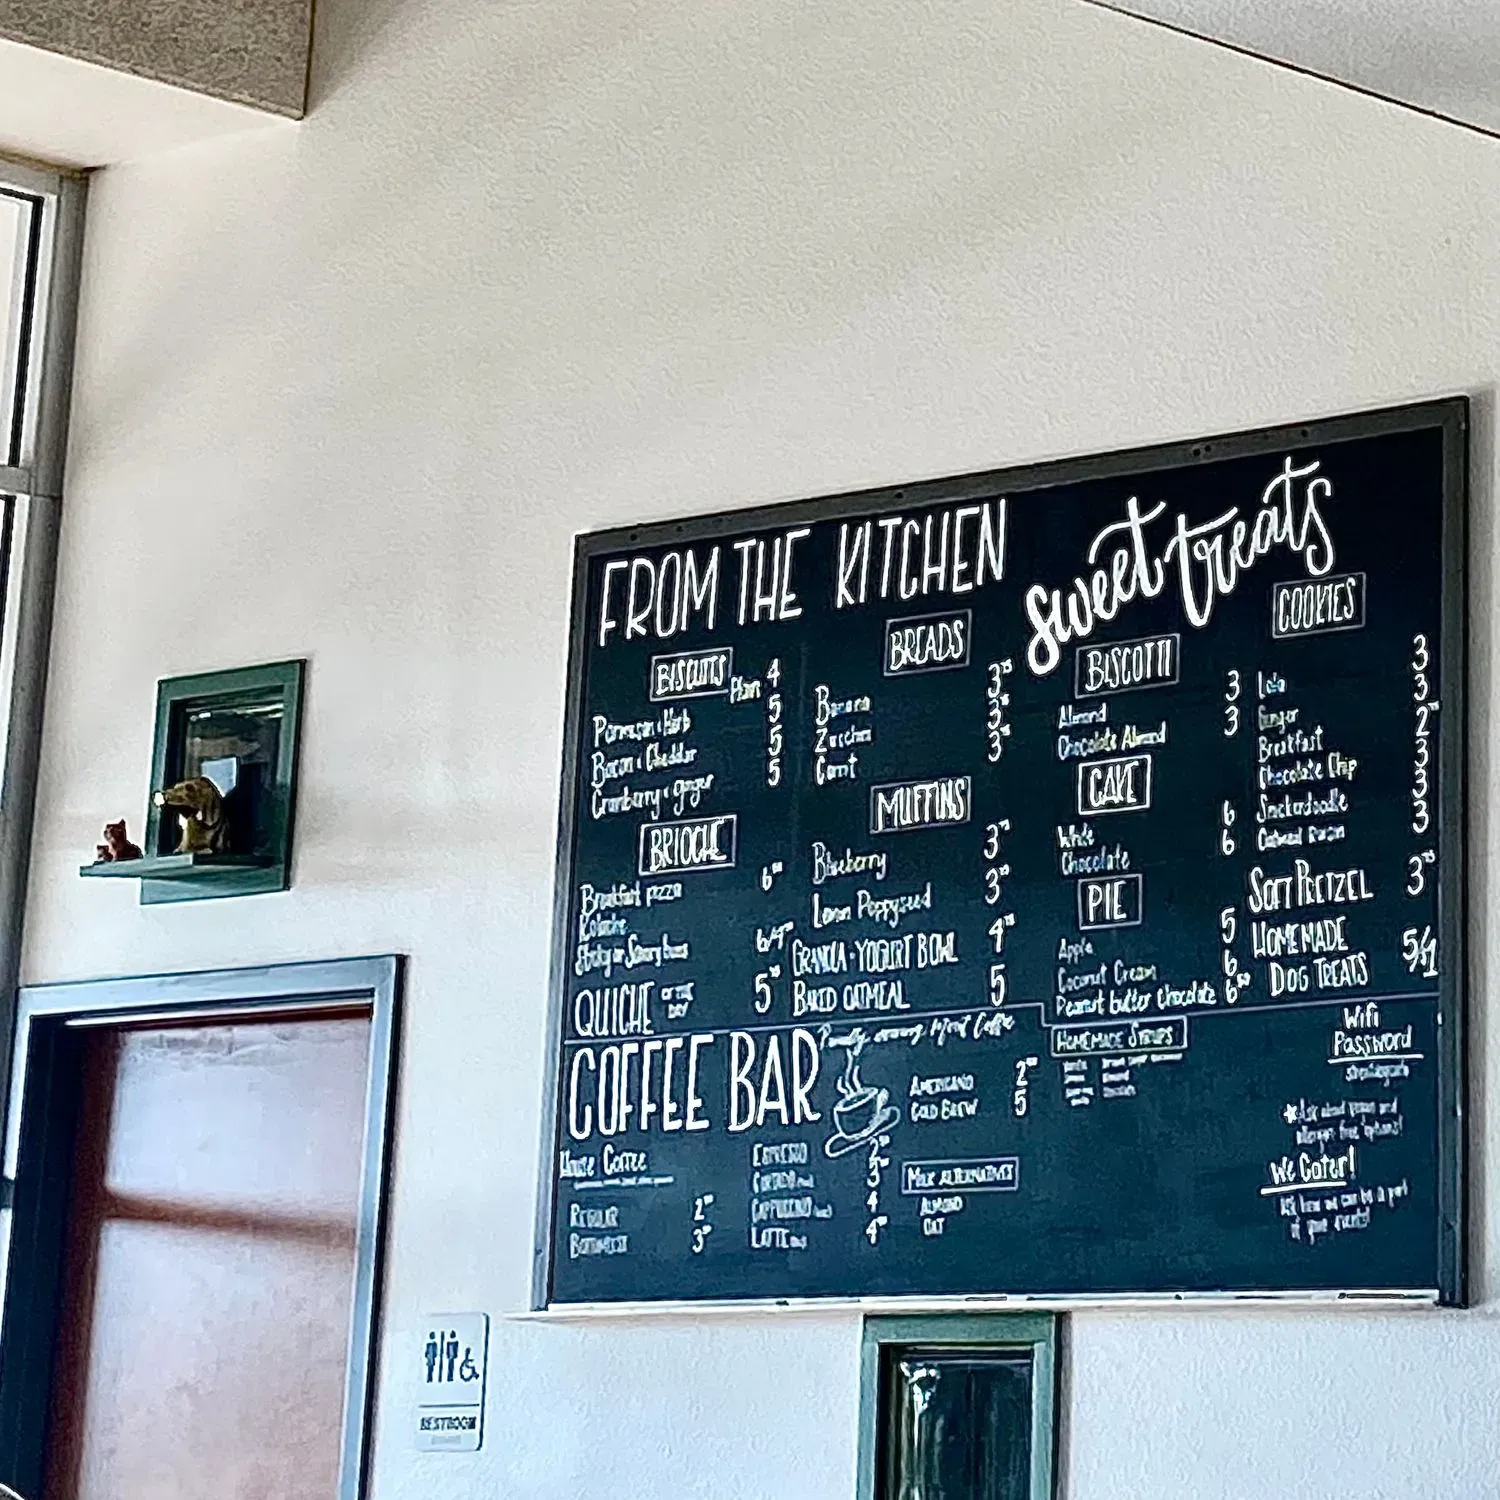 FROM THE KITCHEN
BISCUITS
Plain 4
Parmesan & Herb 5
Bacon & Cheddar 5
Cranberry & ginger 5
BRIOCHE
Breakfast pizza 6
Kolache
Savory buns
QUICHE OF THE DAY 5
BREADS
Banana 3
Zucchini 3
Carrot 3
MUFFINS
Blueberry 3
Lemon Poppyseed 3
GRANOLA · YOGURT BOWL 4
BAKED OATMEAL 5
sweet treats
BISCOTTI
Almond 3
Chocolate Almond 3
CAKE
White 6
Chocolate 6
PIE
Apple 5
Coconut Cream 6
Peanut butter chocolate 6
COOKIES
Lola 3
Ginger 3
Breakfast 2
Chocolate Chip 3
Snickerdoodle 3
Oatmeal Raisin 3
SOFT PRETZEL 3
HOMEMADE
DOG TREATS 5/1
COFFEE BAR
Proudly serving Coffee
House Coffee
REGULAR 2
BOTTOMLESS 3
ESPRESSO 2
CORTADO 3
CAPPUCCINO 4
LATTE 4
AMERICANO 2
COLD BREW 5
MILK ALTERNATIVES
ALMOND
OAT
HOMEMADE SYRUPS
Wifi
Password
*Ask about vegan and
allergen free options!
We Cater!
Ask how we can be a part
of your events!
RESTROOM